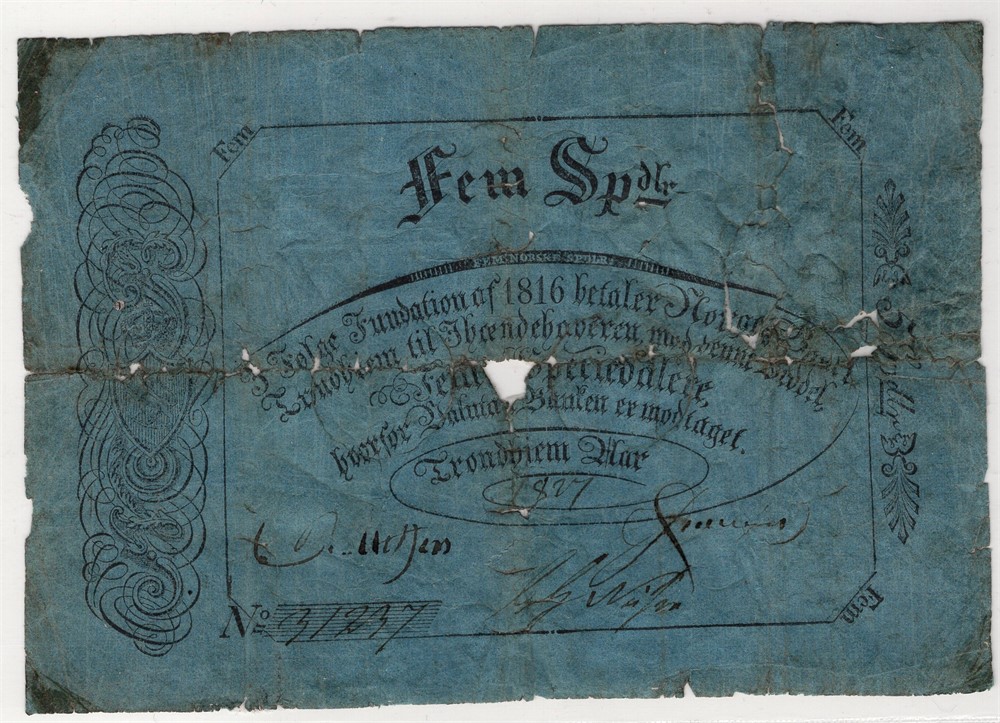 Fem
Fem
Fem Spdlr
FEM NORSKE SPDLR
I Følge Fundation af 1816 betaler Norges
Trondhjem til Ihændehaveren, med denne Seddel,
Fem Speciedalere,
hvorfor Valuta i Banken er modtaget.
Trondhiem Aar
1827
No 31237
Fem